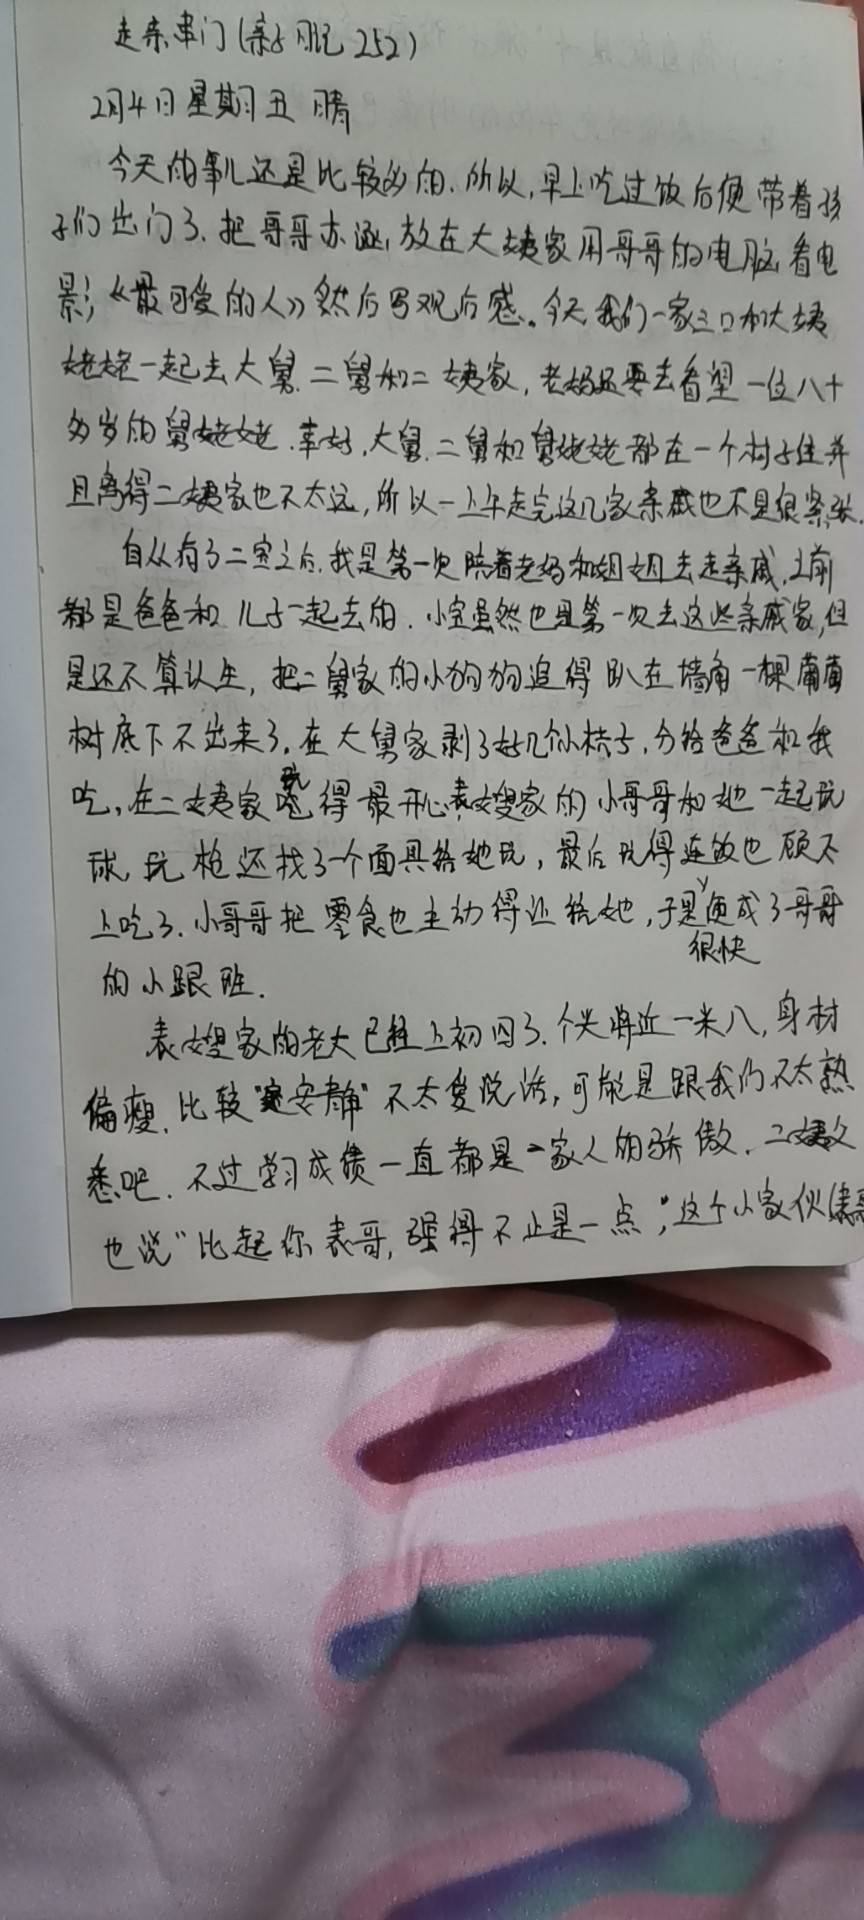 走亲串门(亲子日记252)
2月4日星期五 晴
今天的事儿还是比较多的.所以,早上吃过饭后便带着孩
子们出门了.把哥哥亦涵,放在大姨家用哥哥的电脑看电
影,《最可爱的人》然后写观后感.。今天我们一家三口和大姨
姥姥一起去大舅.二舅和二姨家,老妈还要去看望一位八十
多岁的舅姥姥.幸好,大舅.二舅和舅姥姥都在一个村子住并
且离得二姨家也不太远,所以一上午走完这几家亲戚也不是很紧张.
自从有了二宝之后,我是第一次陪着老妈和姐姐去走亲戚,之前
都是爸爸和儿子一起去的.小宝虽然也是第一次去这些亲戚家,但
是还不算认生,把二舅家的小狗狗追得趴在墙角一棵葡萄
树底下不出来了.在大舅家剥了好几个小桔子,分给爸爸和我
吃,在二姨家玩得最开心,表嫂家的小哥哥和她一起玩
球,玩枪还找了一个面具给她玩,最后玩得连饭也顾不
上吃了.小哥哥把零食也主动得让给她,于是很快便成了哥哥
的小跟班.
表嫂家的老大已经上初四了.个头将近一米八,身材
偏瘦.比较"安静"不太爱说话,可能是跟我们不太熟
悉吧.不过学习成绩一直都是一家人的骄傲.二姨父
也说"比起你表哥,强得不止是一点",这个小家伙